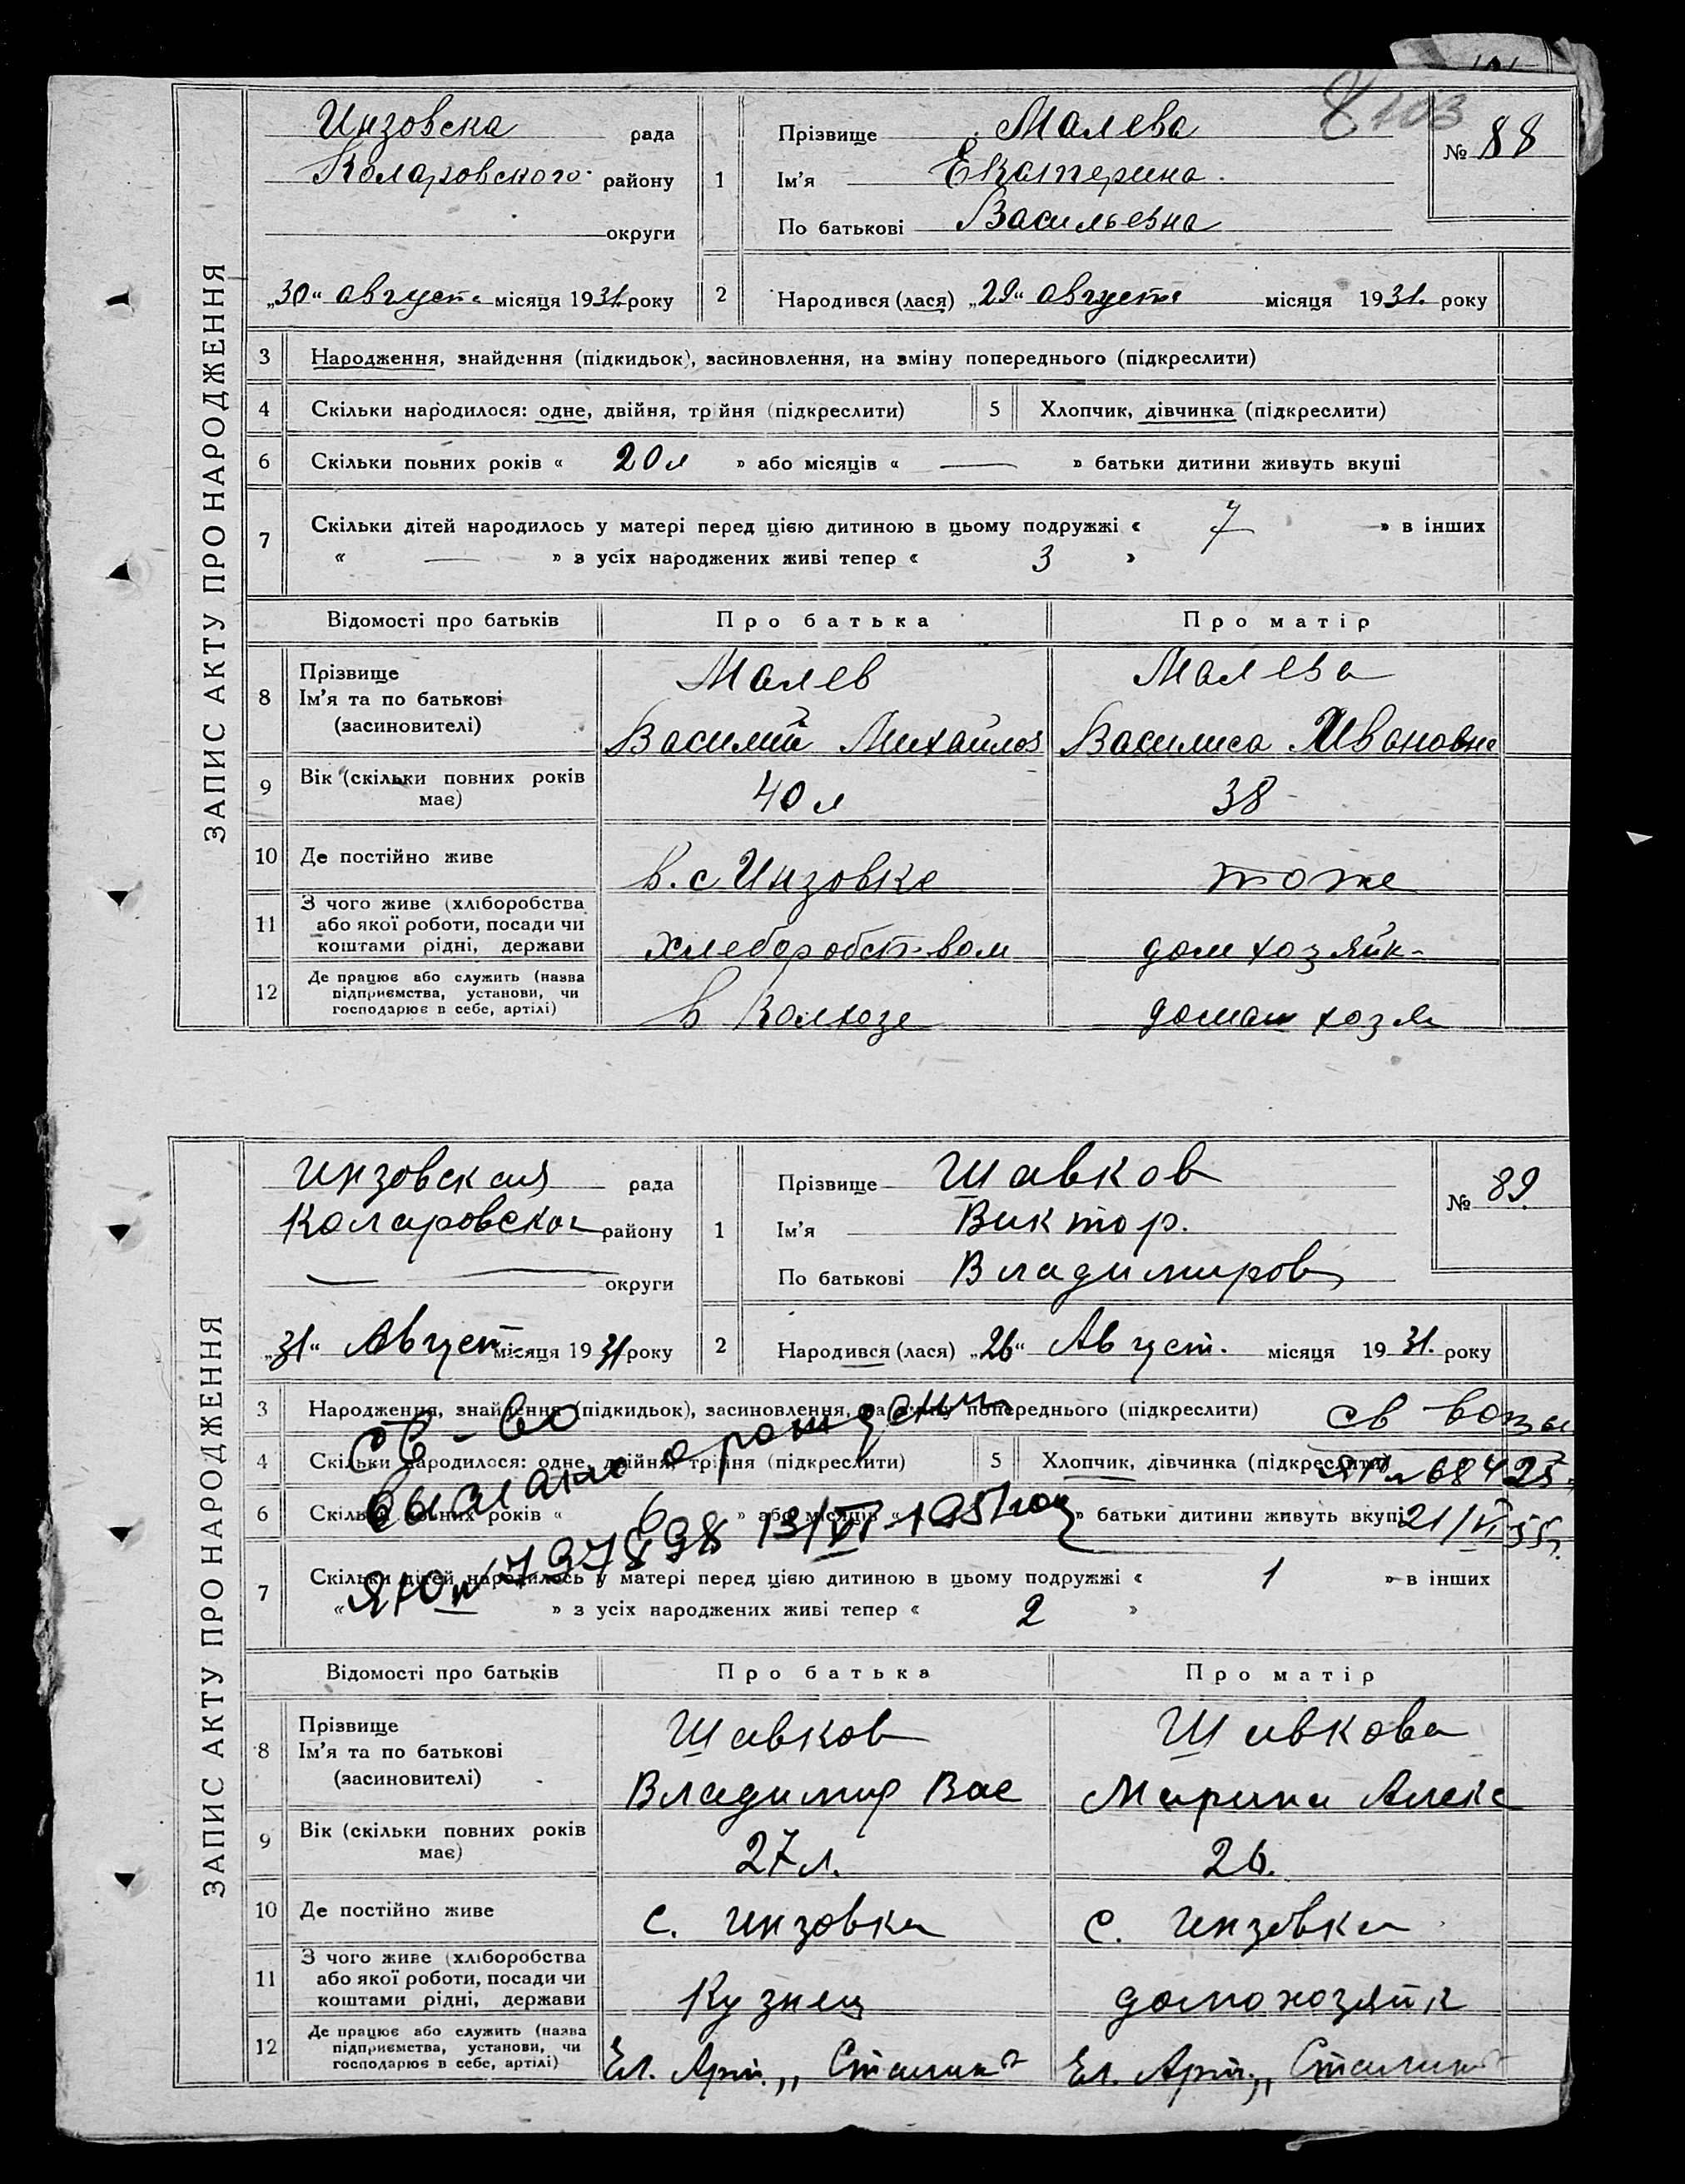 8 103
ЗАПИС АКТУ ПРО НАРОДЖЕННЯ
Инзовска рада
Коларовского району
округи
„30“ август місяця 1931 року
1 Прізвище Малева
Ім’я Екатерина.
По батькові Васильевна
№ 88
2 Народився (лася) „29“ августа місяця 1931. року
3 Народження, знайдення (підкидьок), засиновлення, на зміну попереднього (підкреслити)
4 Скільки народилося: одне, двійня, трійня (підкреслити) 5 Хлопчик, дівчинка (підкреслити)
6 Скільки повних років « 20 л » або місяців « — » батьки дитини живуть вкупі
7 Скільки дітей народилось у матері перед цією дитиною в цьому подружжі « 7 » в інших
« — » з усіх народжених живі тепер « 3 »
Відомості про батьків Про батька Про матір
8 Прізвище
Ім’я та по батькові
(засиновителі)
Малев Малева
Василий Михайлов Василиса Ивановна
9 Вік (скільки повних років
має)
40 л 38
10 Де постійно живе в. с Инзовке тоже
11 З чого живе (хліборобства
або якої роботи, посади чи
коштами рідні, держави
хлеборобст-вом дом хозяйк-
12 Де працює або служить (назва
підприємства, установи, чи
господарює в себе, артілі)
в Колхозе домаш хозя
ЗАПИС АКТУ ПРО НАРОДЖЕННЯ
Инзовская рада
Коларовског району
— округи
„31“ Август місяця 1931 року
1 Прізвище Шавков
Ім’я Виктор.
По батькові Владимиров
№ 89.
2 Народився (лася) „26“ Август. місяця 1931. року
3 Народження, знайдення (підкидьок), засиновлення, на зміну попереднього (підкреслити)
4 Скільки народилося: одне, двійня, трійня (підкреслити) 5 Хлопчик, дівчинка (підкреслити)
6 Скільки повних років « 6 » або місяців « » батьки дитини живуть вкупі
7 Скільки дітей народилось у матері перед цією дитиною в цьому подружжі « 1 » в інших
« — » з усіх народжених живі тепер « 2 »
св-во
о рождении
ЯЮ № 797898 13/VI-1951 год
св
№ 68425
21/VI 55г.
Відомості про батьків Про батька Про матір
8 Прізвище
Ім’я та по батькові
(засиновителі)
Шавков Шавкова
Владимир Вас Марина Алекс
9 Вік (скільки повних років
має)
27 л. 26.
10 Де постійно живе с. Инзовка с. Инзовка
11 З чого живе (хліборобства
або якої роботи, посади чи
коштами рідні, держави
Кузнец домохозяйк
12 Де працює або служить (назва
підприємства, установи, чи
господарює в себе, артілі)
Арт. „ Сталин Арт. „ Сталин